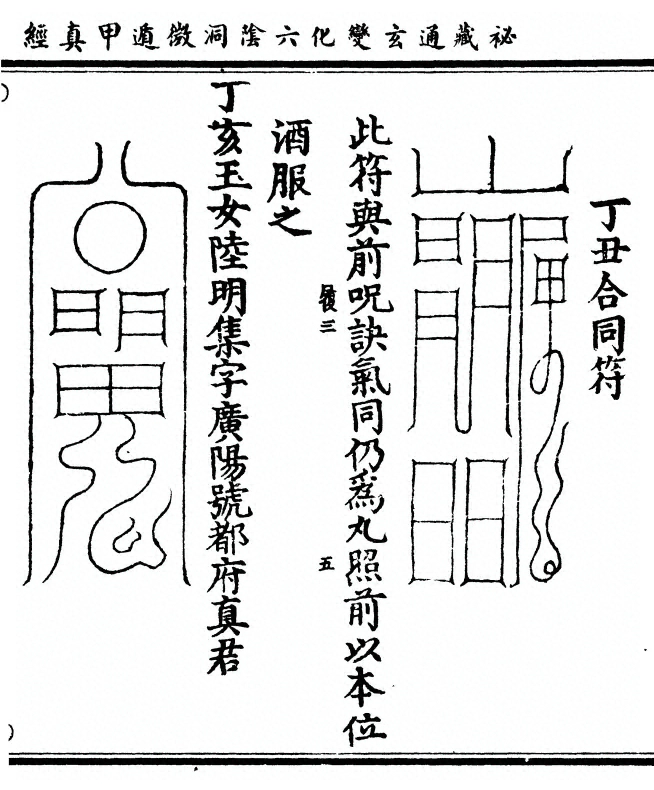 祕藏通玄變化六陰洞微遁甲真經
丁丑合同符
此符與前呪訣氣同仍爲丸照前以本位
三
五
酒服之
丁亥玉女陸明集字廣陽號都府真君